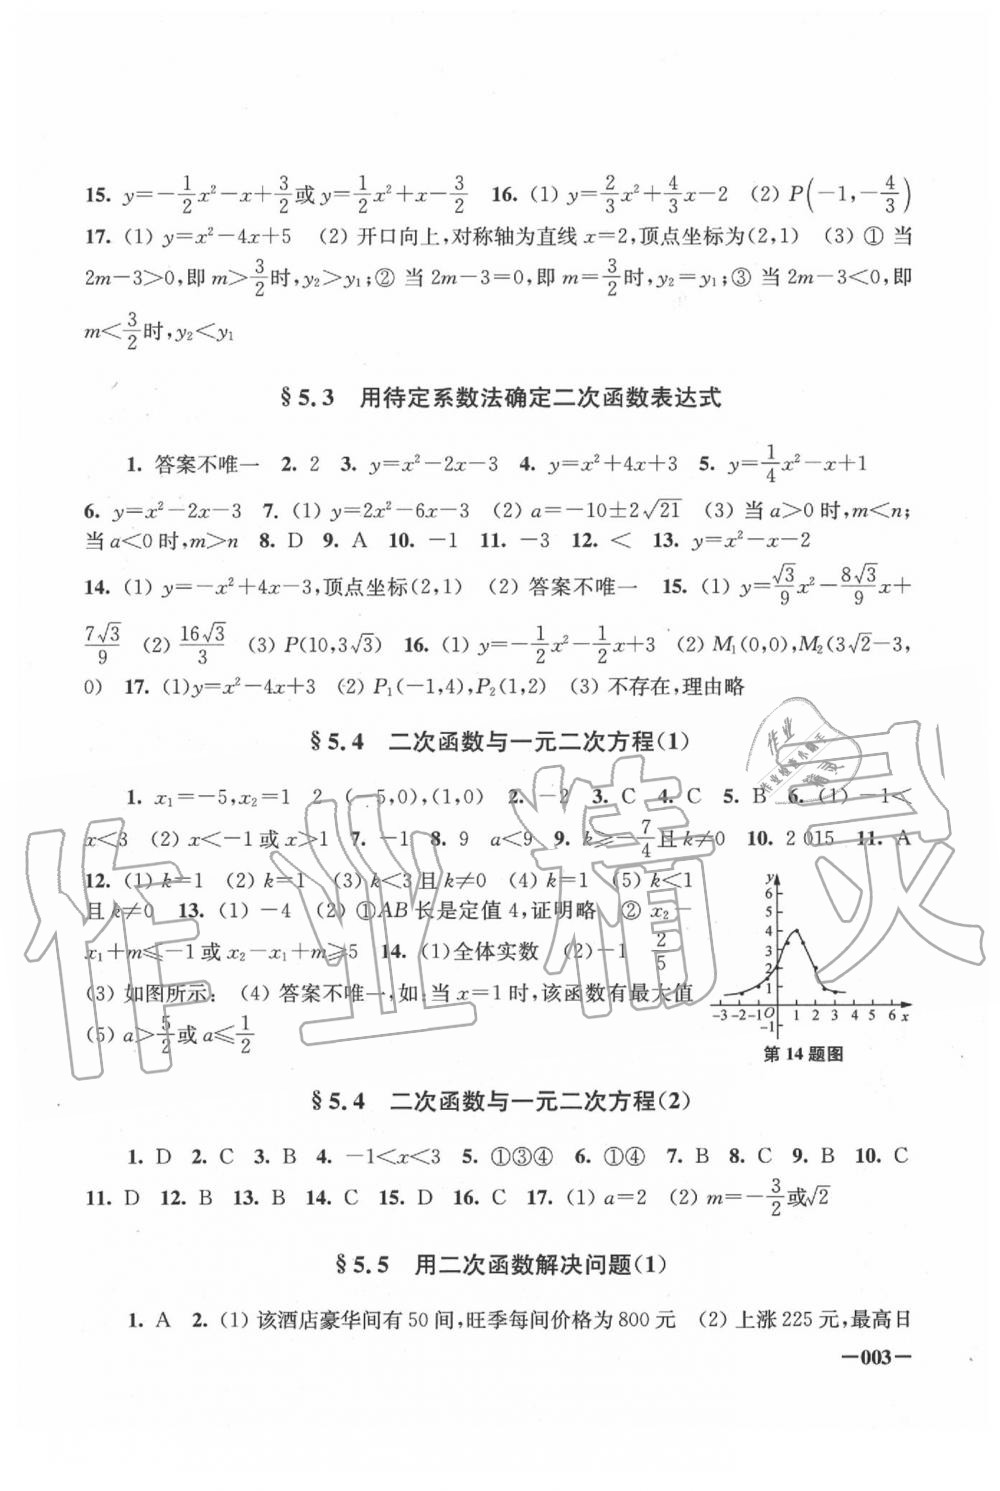 15. y=-1/2x²-x+3/2或y=1/2x²+x-3/2 16. (1) y=2/3x²+4/3x-2 (2) P(-1,-4/3)
17. (1) y=x²-4x+5 (2) 开口向上,对称轴为直线x=2,顶点坐标为(2,1) (3) ① 当
2m-3>0,即m>3/2时,y₂>y₁;② 当2m-3=0,即m=3/2时,y₂=y₁;③ 当2m-3<0,即
m<3/2时,y₂<y₁
§5.3 用待定系数法确定二次函数表达式
1. 答案不唯一 2. 2 3. y=x²-2x-3 4. y=x²+4x+3 5. y=1/4x²-x+1
6. y=x²-2x-3 7. (1) y=2x²-6x-3 (2) a=-10±2√21 (3) 当a>0时,m<n;
当a<0时,m>n 8. D 9. A 10. -1 11. -3 12. < 13. y=x²-x-2
14. (1) y=-x²+4x-3,顶点坐标(2,1) (2) 答案不唯一 15. (1) y=√3/9x²-8√3/9x+
7√3/9 (2) 16√3/3 (3) P(10,3√3) 16. (1) y=-1/2x²-1/2x+3 (2) M₁(0,0),M₂(3√2-3,
0) 17. (1)y=x²-4x+3 (2) P₁(-1,4),P₂(1,2) (3) 不存在,理由略
§5.4 二次函数与一元二次方程(1)
1. x₁=-5,x₂=1 2 (-5,0),(1,0) 2. -2 3. C 4. C 5. B 6. (1) -1<
x<3 (2) x<-1或x>1 7. -1 8. 9 a<9 9. k≥-7/4且k≠0 10. 2 015 11. A
12. (1) k=1 (2) k=1 (3) k<3且k≠0 (4) k=1 (5) k<1
且k≠0 13. (1) -4 (2) ①AB长是定值4,证明略 ② x₂-
x₁+m≤-1或x₂-x₁+m≥5 14. (1)全体实数 (2)-1 2/5
(3) 如图所示: (4) 答案不唯一,如:当x=1时,该函数有最大值
(5) a>5/2或a≤1/2
y
6
5
4
3
2
1
-3 -2 -1 O 1 2 3 4 5 6 x
-1
第14题图
§5.4 二次函数与一元二次方程(2)
1. D 2. C 3. B 4. -1<x<3 5. ①③④ 6. ①④ 7. B 8. C 9. B 10. C
11. D 12. B 13. B 14. C 15. D 16. C 17. (1) a=2 (2) m=-3/2或√2
§5.5 用二次函数解决问题(1)
1. A 2. (1) 该酒店豪华间有50间,旺季每间价格为800元 (2) 上涨225元,最高日
—003—
作业精灵